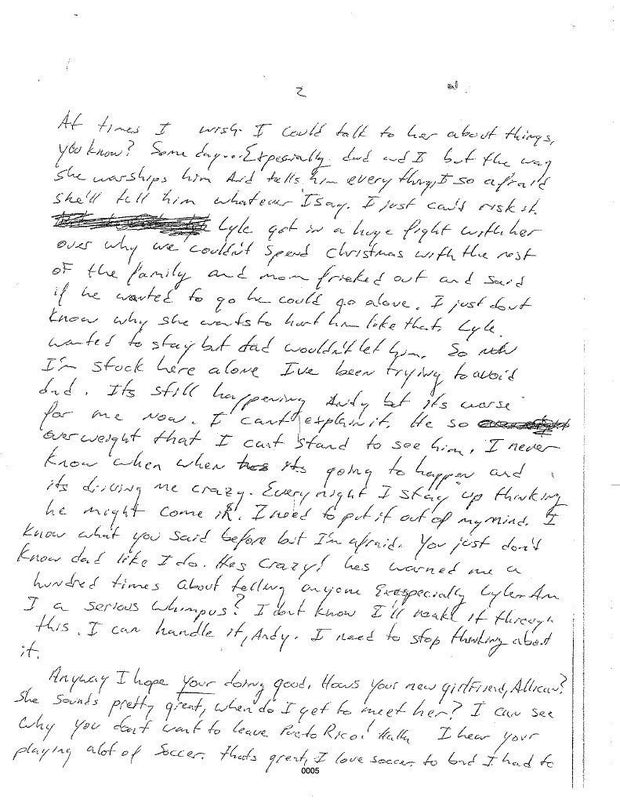 2
At times I wish I could talk to her about things,
you know? Some day... Expecially dad and I but the way
she worships him and tells him every thing I so afraid
she'll tell him whatever I say. I just can't risk it.
Lyle got in a huge fight with her
over why we couldn't spend christmas with the rest
of the family and mom friecked out and said
if he wanted to go he could go alone. I just dont
know why she wants to hurt him like that. Lyle
wanted to stay but dad wouldn't let him. So now
I'm stuck here alone I've been trying to avoid
dad. Its still happening Andy but its worse
for me now. I can't explain it. He so
overweight that I can't stand to see him. I never
know when when its going to happen and
its driving me crazy. Every night I stay up thinking
he might come in. I need to put it out of my mind. I
know what you said before but I'm afraid. You just don't
know dad like I do. Hes crazy! hes warned me a
hundred times about telling anyone Exespecially Lyle. Am
I a serious whimpus? I dont know I'll make it through
this. I can handle it, Andy. I need to stop thinking about
it.
Anyway I hope your doing good. Hows your new girlfriend, Allican?
She sounds pretty great, when do I get to meet her? I can see
why you don't want to leave Puerto Rico! HaHa I hear your
playing alot of Soccer. thats great, I love soccer to but I had to
0005